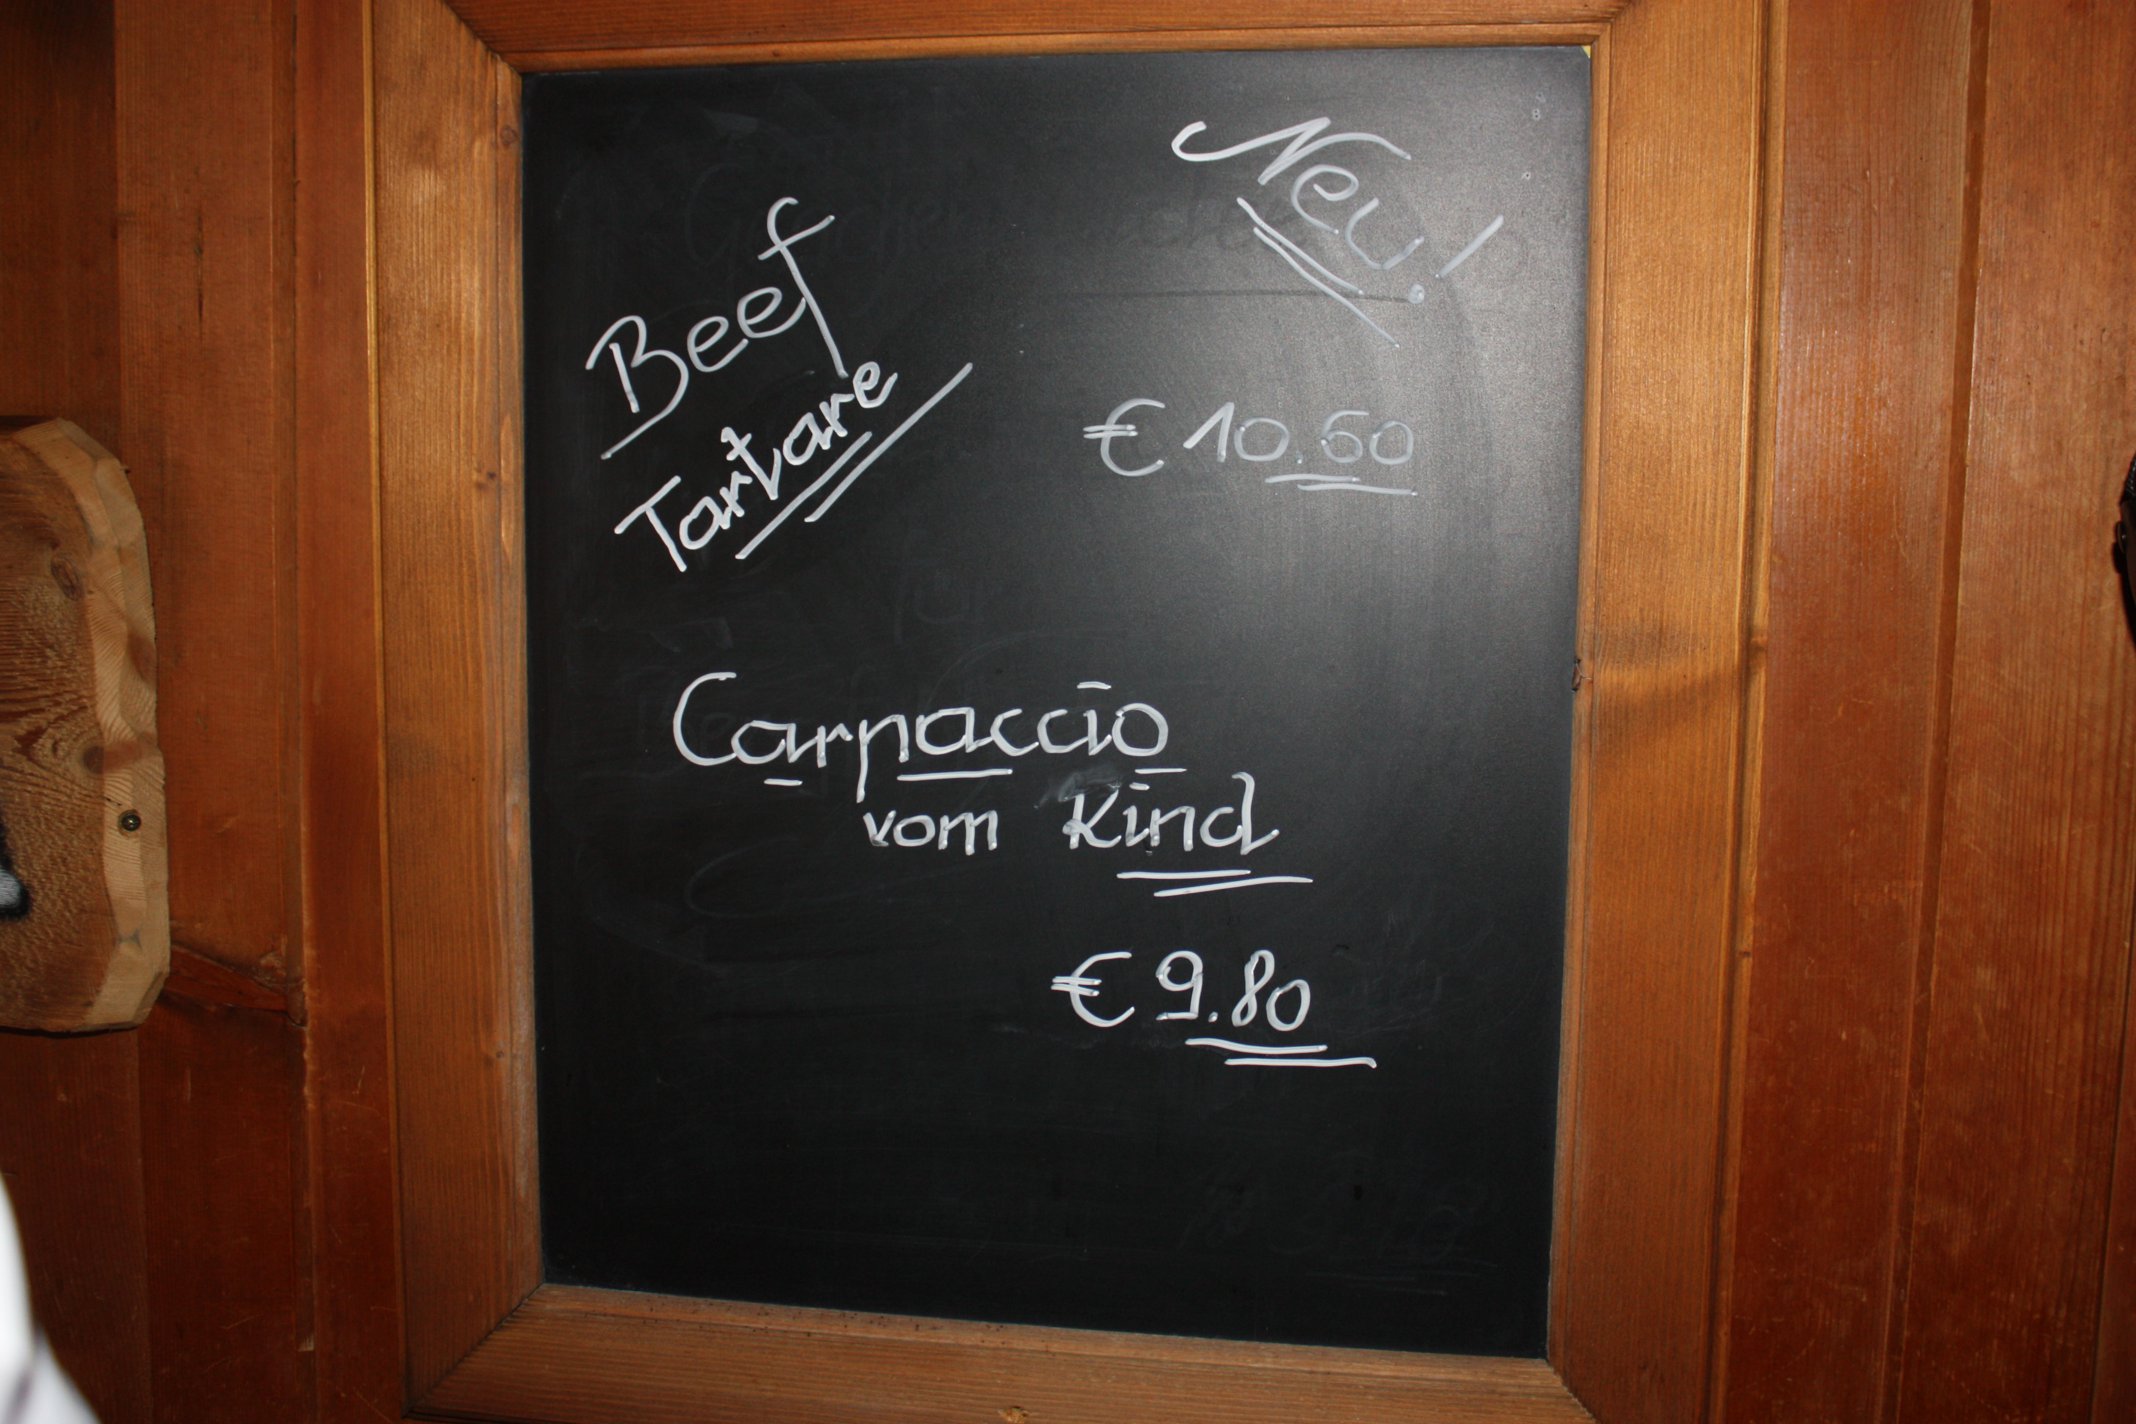 Neu!
Beef
Tartare
€ 10.60
Carpaccio
vom Kind
€ 9.80